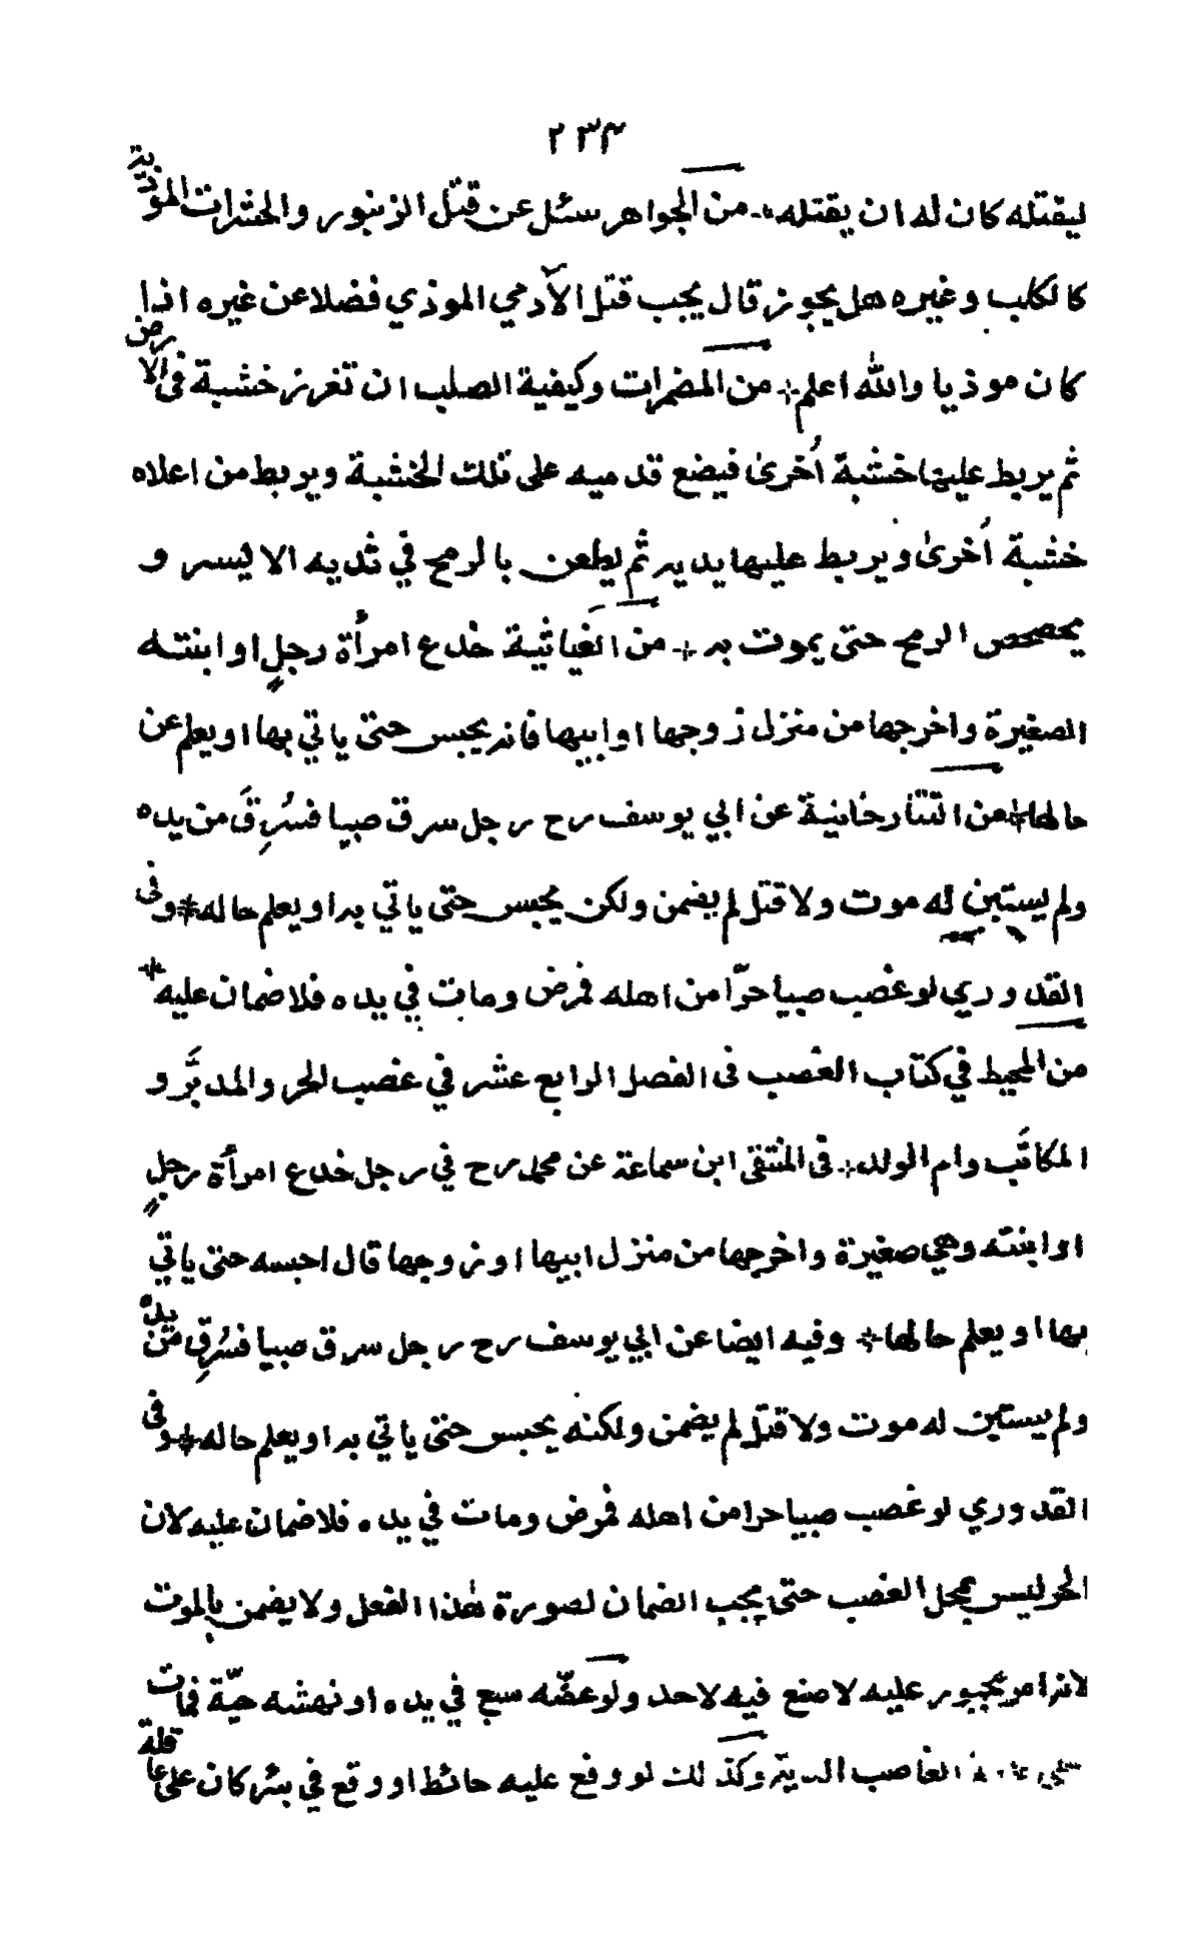 ٢٣٣
ليقتله كان له ان يقتله ٭ من الجواهر سئل عن قتل الزنبور والحشرات الموذية
كالكلب وغيره هل يجوز قال يجب قتل الآدمي الموذي فضلا عن غيره اذا
كان موذيا والله اعلم ٭ من المضمرات وكيفية الصلب ان تغرز خشبة في الارض
ثم يربط عليها خشبة أخرى فيضع قدميه على تلك الخشبة ويربط من اعلاه
خشبة أخرى ويربط عليها يديه ثم يطعن بالرمح في ثديه الايسر و
يخضخض الرمح حتى يموت به ٭ من الغياثية خدع امرأة رجلٍ او ابنته
الصغيرة واخرجها من منزل زوجها او ابيها فانه يحبس حتى ياتي بها او يعلم عن
حالها ٭ من التتارخانية عن ابي يوسف رح رجل سرق صبيا فسُرِقَ من يده
ولم يستبن له موت ولا قتل لم يضمن ولكن يحبس حتى ياتي به او يعلم حاله ٭ وفى
القدوري لو غصب صبيا حرّا من اهله فمرض ومات في يده فلا ضمان عليه ٭
من المحيط في كتاب الغصب فى الفصل الرابع عشر في غصب الحر والمدبَّر و
المكاتَب وام الولد ٭ فى المنتقى ابن سماعة عن محمد رح في رجل خدع امرأة رجلٍ
او ابنته وهي صغيرة واخرجها من منزل ابيها او زوجها قال احبسه حتى ياتي
بها او يعلم حالها ٭ وفيه ايضا عن ابي يوسف رح رجل سرق صبيا فسُرِق من يده
ولم يستبن له موت ولا قتل لم يضمن ولكنه يحبس حتى ياتي به او يعلم حاله ٭ وفى
القدوري لو غصب صبيا حرا من اهله فمرض ومات في يده فلا ضمان عليه لان
الحر ليس بمحل الغصب حتى يجب الضمان لصورة هٰذا الفعل ولا يضمن بالموت
لانه امر مجبور عليه لا صنع فيه لاحد ولو عضّه سبع في يده او نهشه حيّة فمات
الغاصب الدية وكذلك لو وقع عليه حائط او وقع في بئر كان على عاقلة